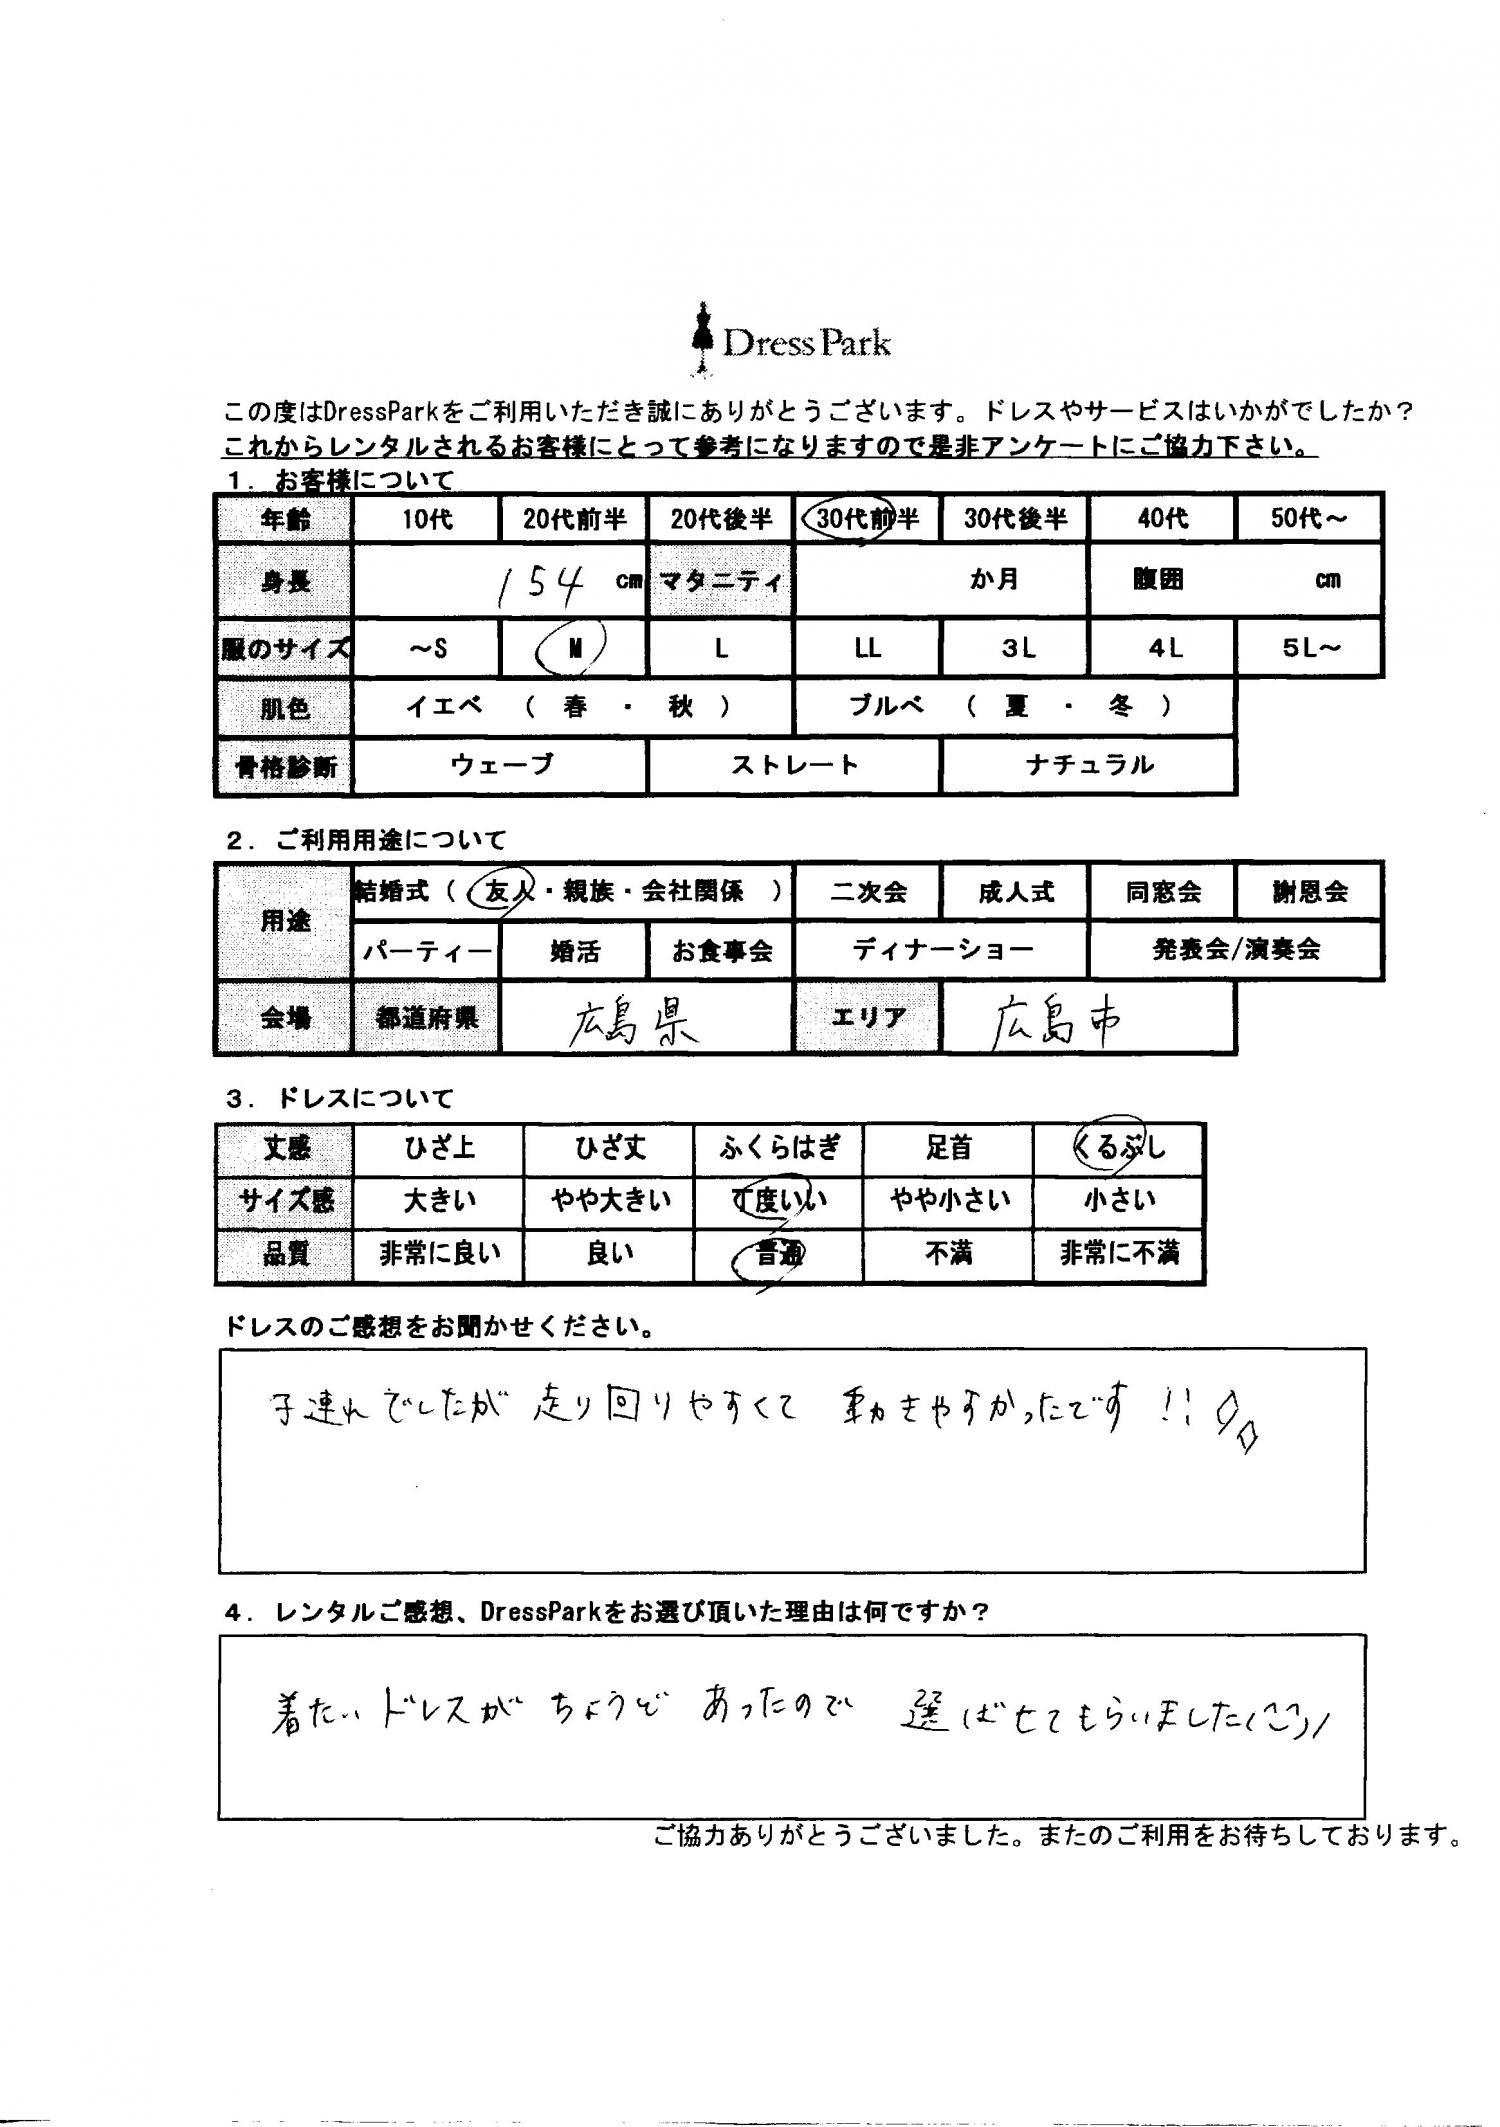 Dress Park
この度はDressParkをご利用いただき誠にありがとうございます。ドレスやサービスはいかがでしたか？
これからレンタルされるお客様にとって参考になりますので是非アンケートにご協力下さい。
1. お客様について
年齢 10代 20代前半 20代後半 30代前半 30代後半 40代 50代～
身長 154 cm マタニティ か月 腹囲 cm
服のサイズ ～S M L LL 3L 4L 5L～
肌色 イエベ （ 春 ・ 秋 ） ブルベ （ 夏 ・ 冬 ）
骨格診断 ウェーブ ストレート ナチュラル
2. ご利用用途について
用途 結婚式（ 友人・親族・会社関係 ） 二次会 成人式 同窓会 謝恩会
パーティー 婚活 お食事会 ディナーショー 発表会/演奏会
会場 都道府県 広島県 エリア 広島市
3. ドレスについて
丈感 ひざ上 ひざ丈 ふくらはぎ 足首 くるぶし
サイズ感 大きい やや大きい 丁度いい やや小さい 小さい
品質 非常に良い 良い 普通 不満 非常に不満
ドレスのご感想をお聞かせください。
子連れでしたが 走り回りやすくて 動きやすかったです!!
4. レンタルご感想、DressParkをお選び頂いた理由は何ですか？
着たいドレスが ちょうど あったので 選ばせてもらいました
ご協力ありがとうございました。またのご利用をお待ちしております。